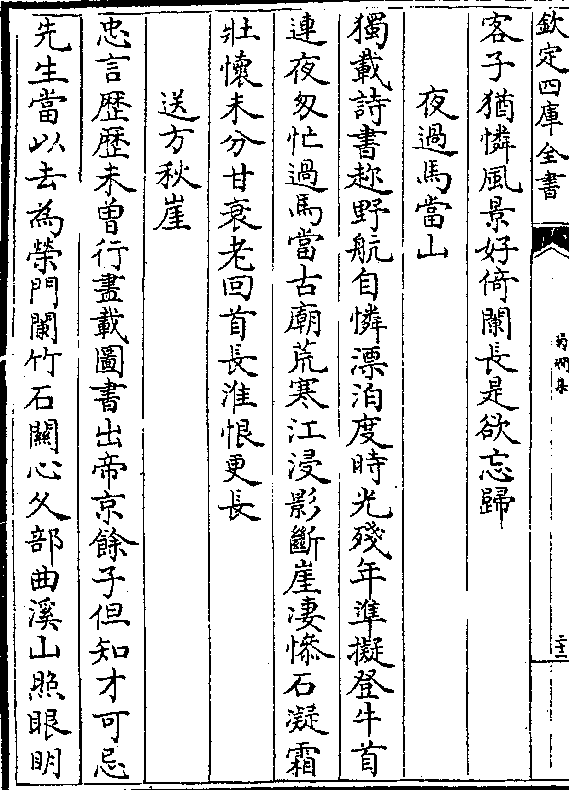 欽定四庫全書
客子猶憐風景好倚闌長是欲忘歸
夜過馬當山
獨載詩書趂野航自憐漂泊度時光殘年準擬登牛首
連夜匆忙過馬當古廟荒寒江浸影斷崖凄慘石凝霜
壯懷未分甘衰老回首長淮恨更長
送方秋崖
忠言歴歴未曽行盡載圖書出帝京餘子但知才可忌
先生當以去為榮門闌竹石闗心久部曲溪山照眼明